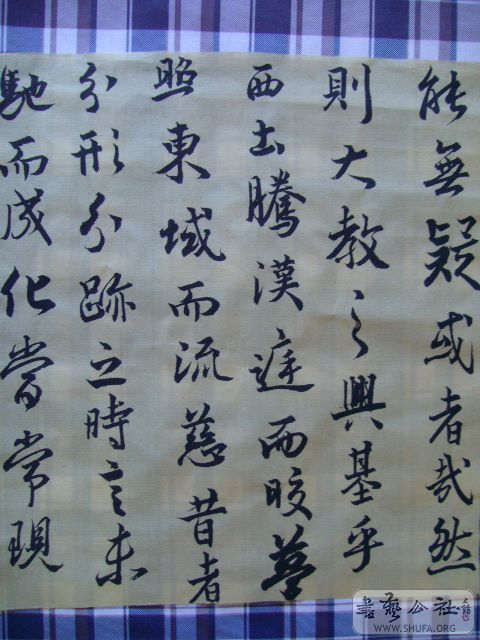 能無疑或者哉然
則大教之興基乎
西土騰漢庭而皎夢
照東域而流慈昔者
分形分跡之時言未
馳而成化當常現
書藝公社
WWW.SHUFA.ORG